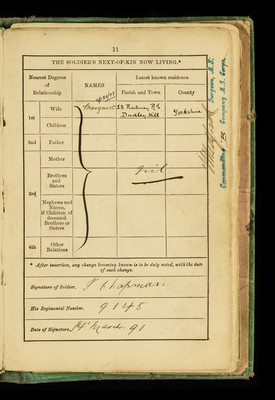 11
THE SOLDIER'S NEXT-OF-KIN NOW LIVING.*
Nearest Degrees of Relationship
NAMES
Latest known residence
Parish and Town
County
1st
Wife
Margaret
23 Railway Rd
Dudley Hill
Yorkshire
Children
2nd
Father
Mother
3rd
Brothers and Sisters
Nil
Nephews and Nieces, if Children of deceased Brothers or Sisters
4th
Other Relations
* After insertion, any change becoming known is to be duly noted, with the date
of each change.
Signature of Soldier, J Chapman
His Regimental Number, 9148
Date of Signature, March 91
Surgeon, M.S.
Commanding Company M.S. Corps.